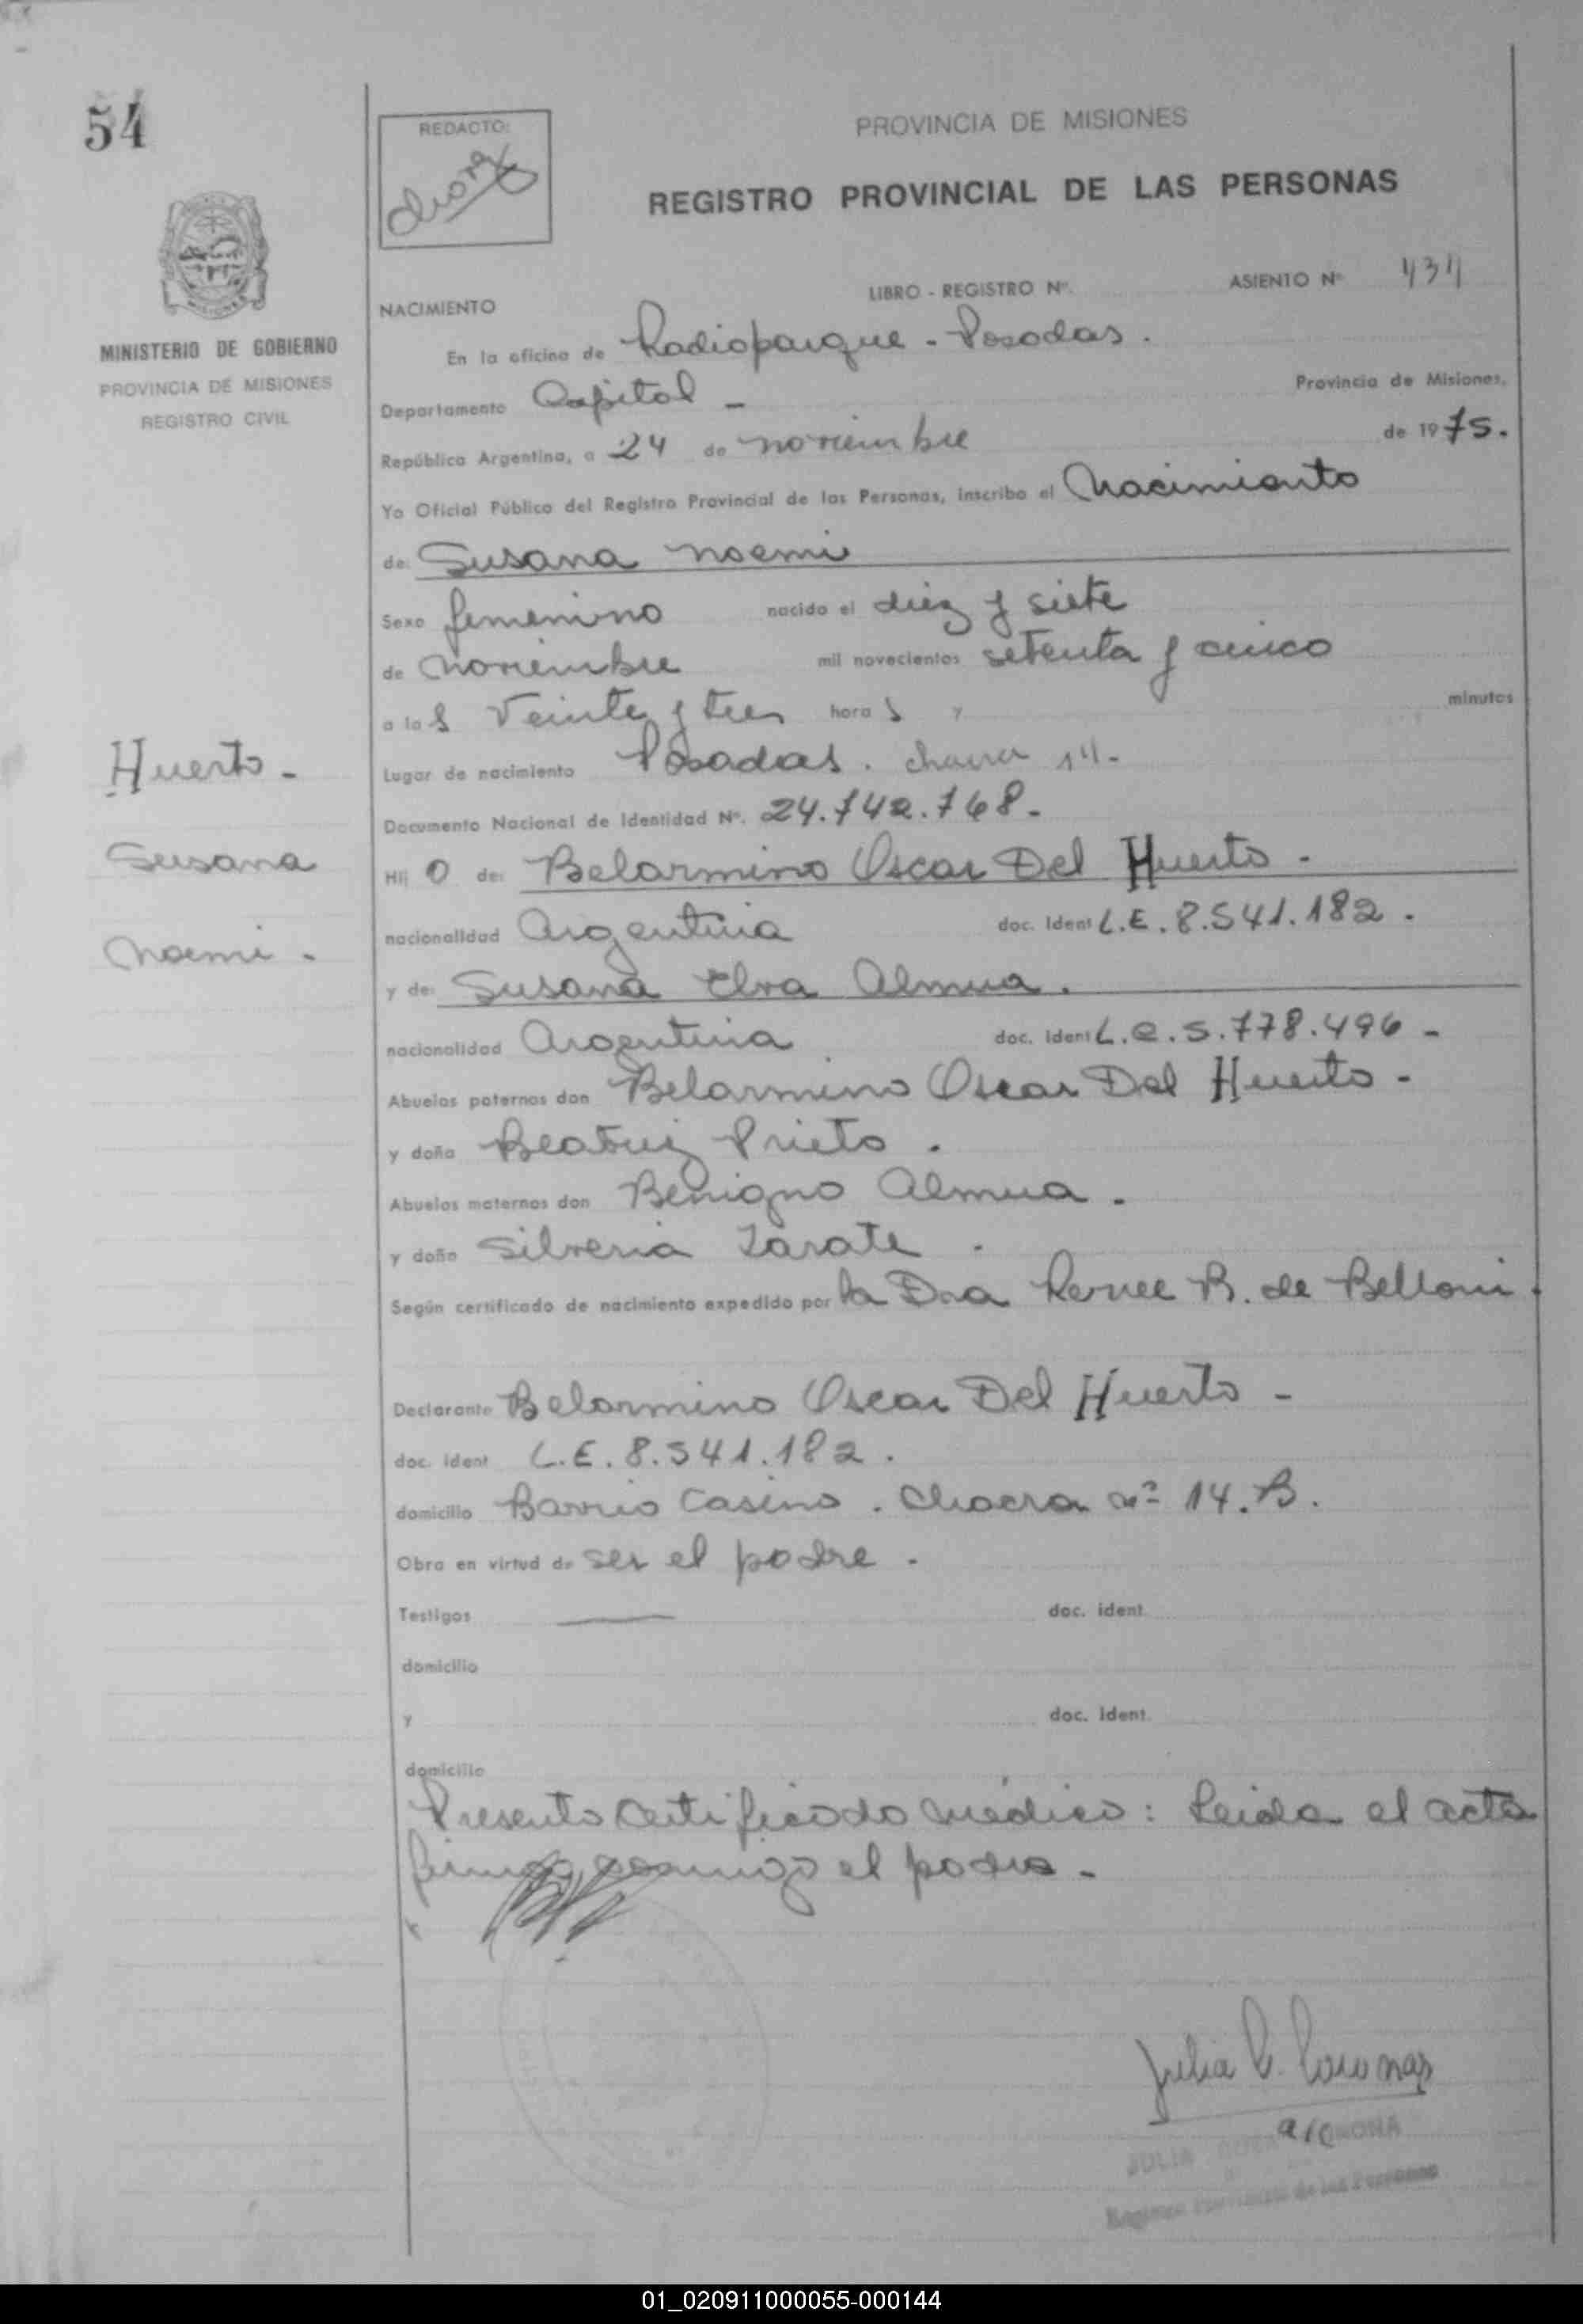 54
REDACTO:
PROVINCIA DE MISIONES
REGISTRO PROVINCIAL DE LAS PERSONAS
MINISTERIO DE GOBIERNO
PROVINCIA DE MISIONES
REGISTRO CIVIL
NACIMIENTO LIBRO - REGISTRO Nº. ASIENTO Nº 434
En la oficina de Radioparque - Posadas.
Departamento Capital - Provincia de Misiones,
República Argentina, a 24 de noviembre de 1975.
Yo Oficial Público del Registro Provincial de las Personas, inscribo el Nacimiento
de: Susana Noemi
Sexo femenino nacido el diez y siete
de Noviembre mil novecientos setenta y cinco
a las Veinte y tres horas y minutos
Lugar de nacimiento Posadas. chacra 14-
Documento Nacional de Identidad Nº. 24.742.768-
Hijo de: Belarmino Oscar Del Huerto -
nacionalidad Argentina doc. Ident L.E. 8.541.182.
y de: Susana Elva Almua.
nacionalidad Argentina doc. Ident L.C. 5.778.496-
Abuelos paternos don Belarmino Oscar Del Huerto -
y doña Beatriz Prieto.
Abuelos maternos don Benigno Almua.
y doña Silveria Zarate.
Según certificado de nacimiento expedido por la Dra Renee B. de Belloni.
Declarante Belarmino Oscar Del Huerto -
doc. Ident L.E. 8.541.182.
domicilio Barrio Casino. Chacra nº 14.B.
Obra en virtud de ser el padre.
Testigos doc. ident.
domicilio
y doc. ident.
domicilio
Presento Certificado médico: Leida el acta
firma conmigo el padre -
Huerto -
Susana
Noemi -
Julia
a/c
JULIA CORONA
Registro Provincial de las Personas
01_020911000055-000144